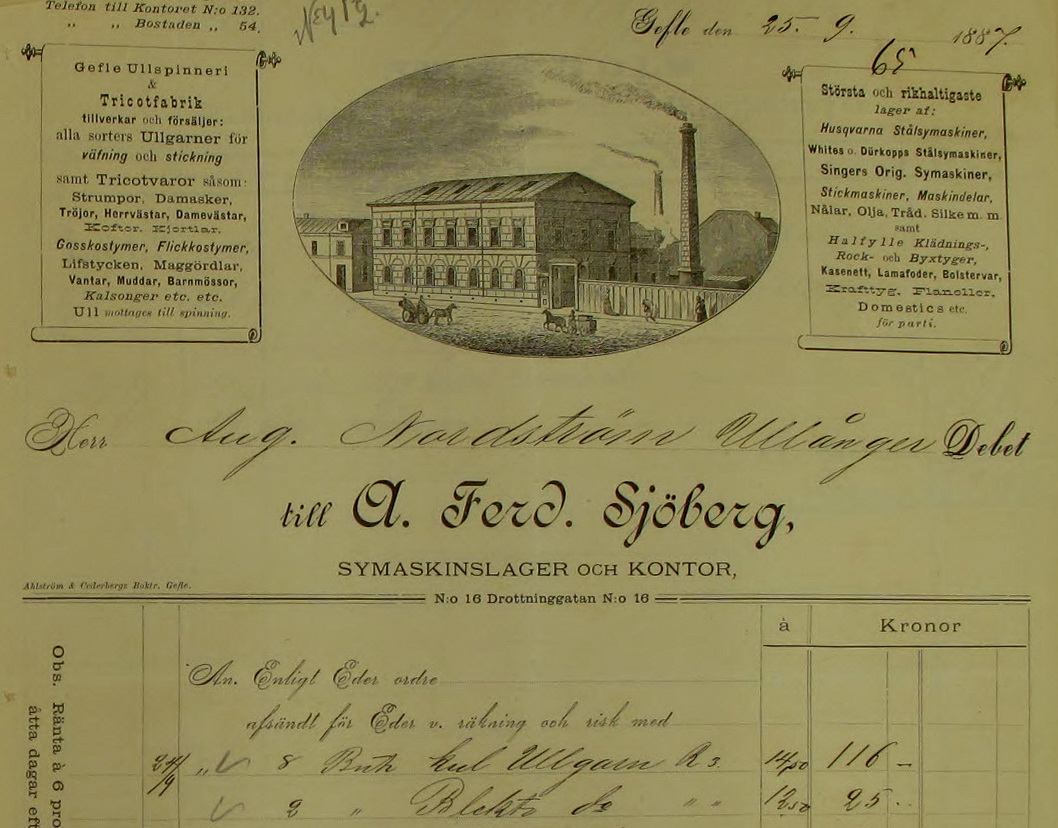 Telefon till Kontoret N:o 132.
„ „ Bostaden „ 54.
Gefle den 25. 9. 1887.
65
Gefle Ullspinneri
&
Tricotfabrik
tillverkar och försäljer:
alla sorters Ullgarner för
väfning och stickning
samt Tricotvaror såsom:
Strumpor, Damasker,
Tröjor, Herrvästar, Damevästar,
Koftor. Kjortlar.
Gosskostymer, Flickkostymer,
Lifstycken, Maggördlar,
Vantar, Muddar, Barnmössor,
Kalsonger etc. etc.
Ull mottages till spinning.
Största och rikhaltigaste
lager af:
Husqvarna Stålsymaskiner,
Whites o. Dürkopps Stålsymaskiner,
Singers Orig. Symaskiner,
Stickmaskiner, Maskindelar,
Nålar, Olja, Tråd, Silke m. m.
samt
Halfylle Klädnings-,
Rock- och Byxtyger,
Kasenett, Lamafoder, Bolstervar,
Krafttyg. Flaneller,
Domestics etc.
för parti.
Herr Aug. Nordström Ullånger Debet
till A. Ferd. Sjöberg,
SYMASKINSLAGER OCH KONTOR,
Ahlström & Cederbergs Boktr. Gefle.
N:o 16 Drottninggatan N:o 16
à Kronor
An. Enligt Eder ordre
afsändt för Eder v. räkning och risk med
24/9 „ 8 Bnth kul Ullgarn R 3 14,50 116 –
2 „ Blekta do „ „ 12,50 25 ..
Obs. Ränta à 6 pro
åtta dagar eft